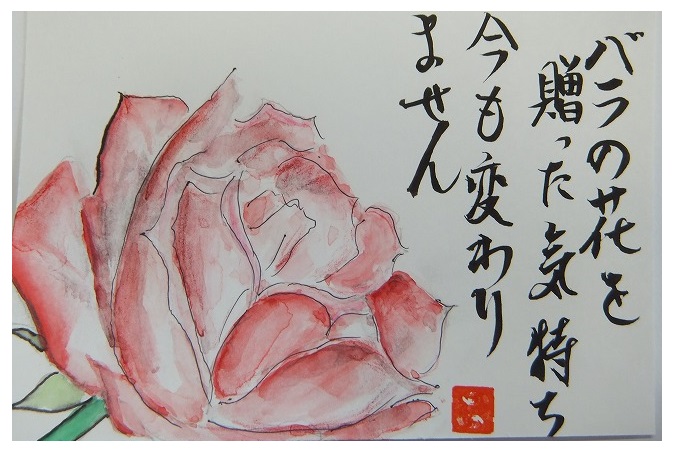 バラの花を
贈った気持ち
今も変わり
ません